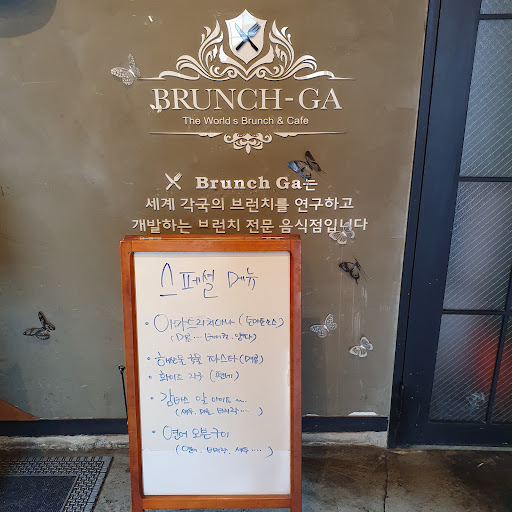 BRUNCH-GA
The World s Brunch & Cafe
Brunch Ga는
세계 각국의 브런치를 연구하고
개발하는 브런치 전문 음식점입니다
스페셜 메뉴
아마트리치아나 (토마토소스)
해산물 볶음 파스타 (매콤)
화이트 라구 (펜네)
감바스 알 아히요
연어 오븐구이